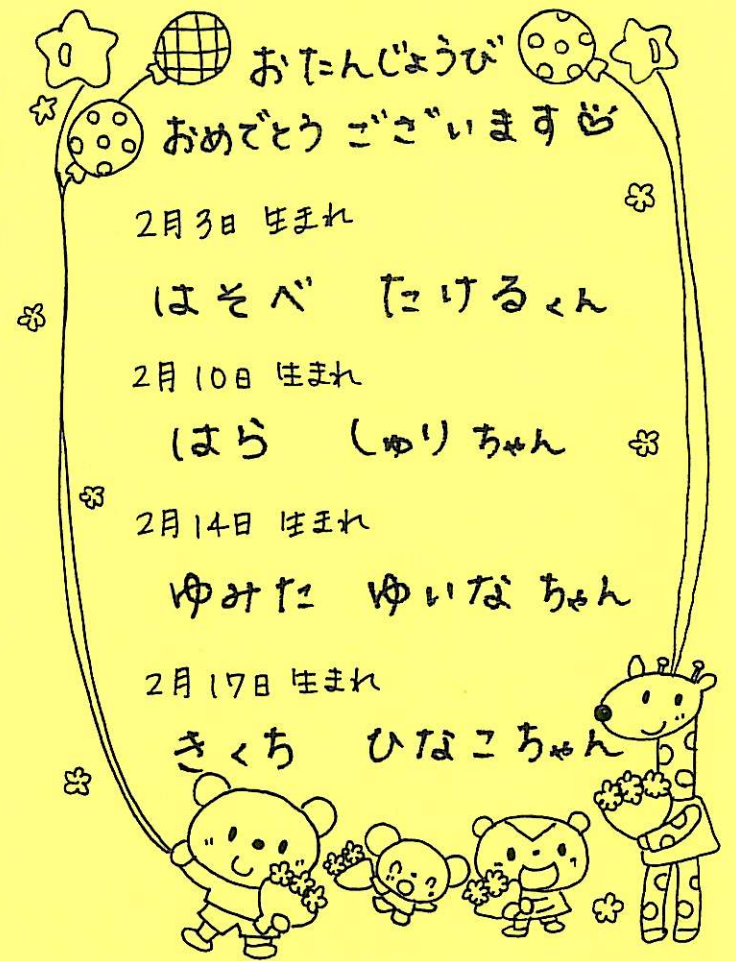 おたんじょうび
おめでとうございます♡
2月3日 生まれ
はそべ たけるくん
2月10日 生まれ
はら しゅりちゃん
2月14日 生まれ
ゆみた ゆいなちゃん
2月17日 生まれ
きくち ひなこちゃん